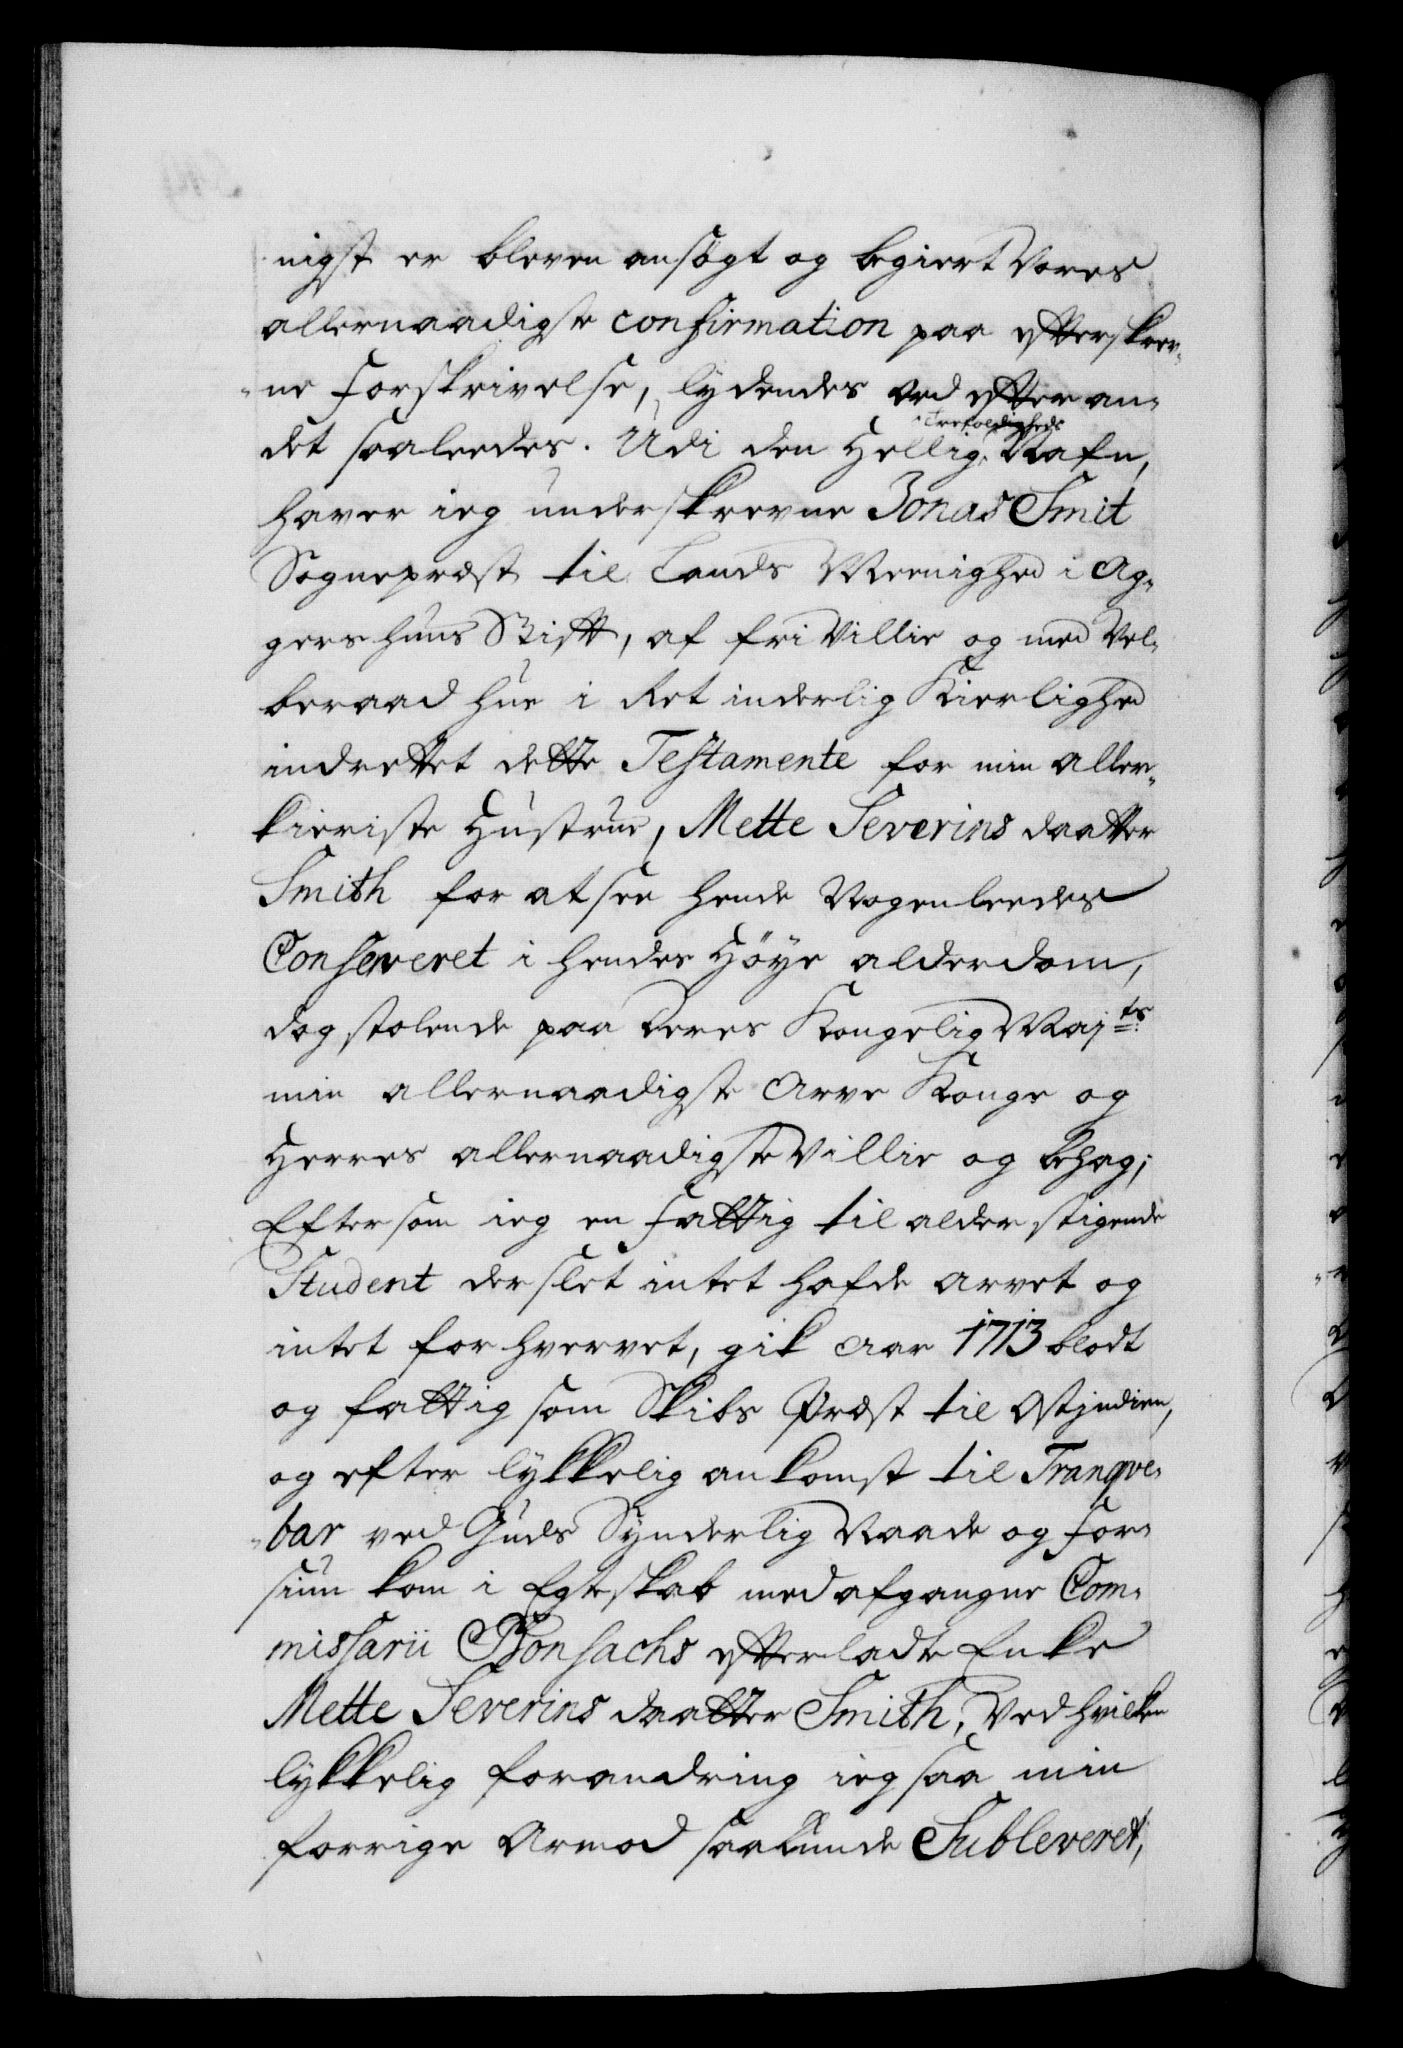 nigst er bleven ansøgt og begiert Vores
allernaadigste confirmation paa efterskrev-
ne Forskrivelse, lydendes ord efter an-
det saaleedes. Udi den Hellig Trefoldigheds Nafn,
haver ieg underskrevne Jonas Smit
Sognepræst til Lands Meenighed i Ag-
gershuus Stift, af frivillie og med Vel-
beraad hue i Ret inderlig Kierlighed
indrettet dette Testamente for min aller-
kieriste Hustrue, Mette Severins daatter
Smith for at see hende Nogenleedes
Conserveret i hendes Høye alderdom,
dog stolende paa deres Kongelig Majts
min allernaadigste Arve Konge og
Herres allernaadigste Villie og behag;
Eftersom ieg en fattig til alder stigende
Student der slet intet hafde arvet og
intet forhvervet, gik aar 1713 blodt
og fattig som Skibs Præst til Ostindien,
og efter lykkelig ankomst til Tranqve-
bar ved Guds Synderlig Naade og For-
siun kom i Egteskab med afgangne Com-
missarii Bonsachs efterladte Enke
Mette Severins daatter Smith, Ved hvilken
lykkelig forandring ieg saa min
forrige Armod saalunde Subleveret,